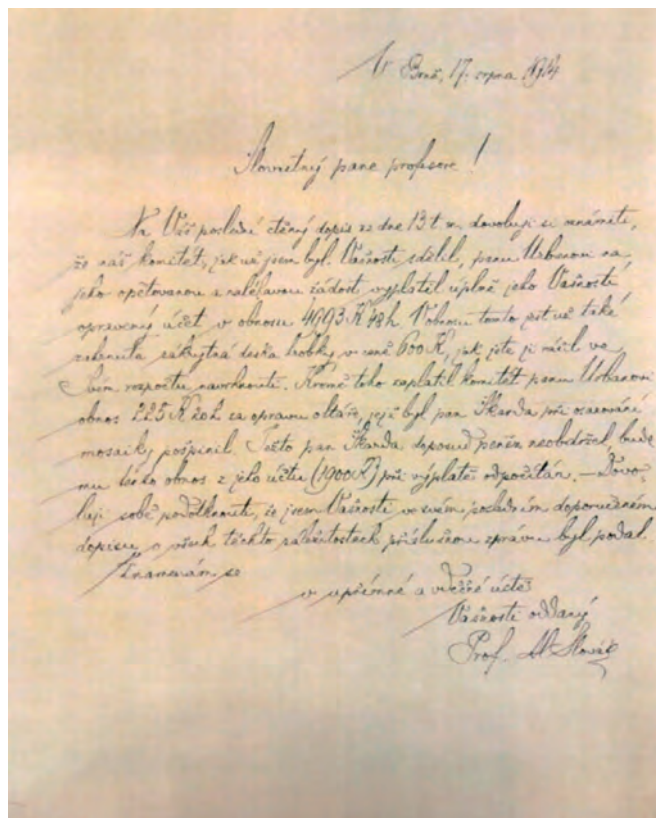 V Brně, 17. srpna 1914
Slovutný pane profesore!
Na Váš poslední ctěný dopis ze dne 13 t. m. dovoluji si oznámiti,
že náš komitét, jak už jsem byl Vašnosti sdělil, panu Urbanovi na
jeho opětovanou a naléhavou žádost vyplatil úplně jeho Vašností
opravený účet v obnosu 4993 K 48 h. V obnosu tomto jest už také
zahrnuta zákrytná deska hrobky v ceně 600 K, jak jste ji ráčil ve
Svém rozpočtu navrhnouti. Kromě toho zaplatil komitét panu Urbanovi
obnos 225 K 20 h za opravu oltáře, jejž byl pan Škarda při osazování
mosaiky pošpinil. Ježto pan Škarda doposud peněz neobdržel, bude
mu tento obnos z jeho účtu (1900 K) při výplatě odpočítán. — Dovo-
luji sobě podotknouti, že jsem Vašnosti ve svém posledním doporučeném
dopisu o všech těchto záležitostech příslušnou zprávu byl podal.
Znamenám se
v upřímné a vděčné úctě
Vašnosti oddaný
Prof. M. Slovák